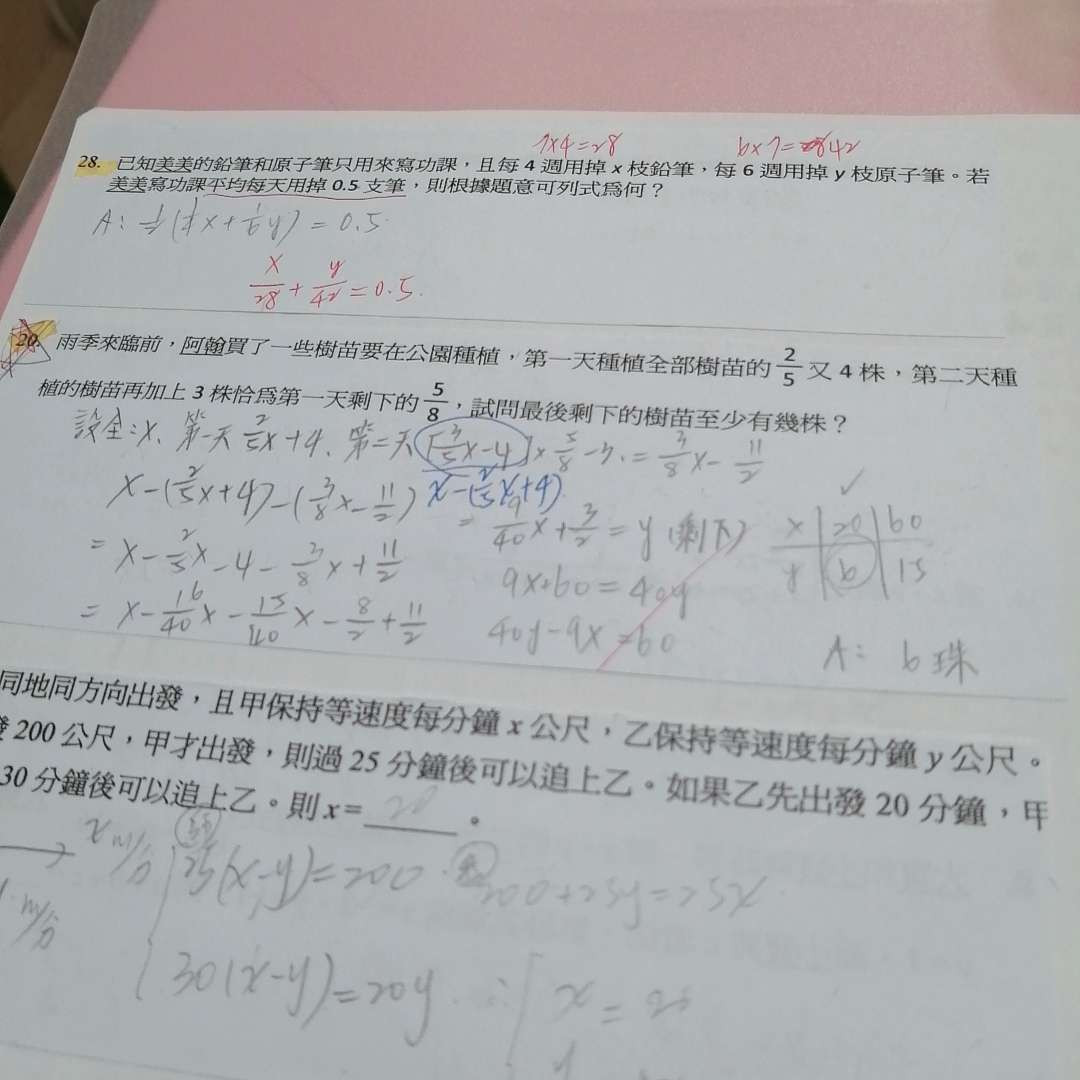 7x4=28 6x7=42
28. 已知美美的鉛筆和原子筆只用來寫功課，且每 4 週用掉 x 枝鉛筆，每 6 週用掉 y 枝原子筆。若
美美寫功課平均每天用掉 0.5 支筆，則根據題意可列式為何？
A: 1/7(1/4x+1/6y)=0.5
x/28+y/42=0.5.
20. 雨季來臨前，阿翰買了一些樹苗要在公園種植，第一天種植全部樹苗的 2/5 又 4 株，第二天種
植的樹苗再加上 3 株恰為第一天剩下的 5/8，試問最後剩下的樹苗至少有幾株？
設全:x、第一天 2/5x+4、第二天[3/5x-4]x5/8-3.=3/8x-11/2
x-(2/5x+4)
x-(2/5x+4)-(3/8x-11/2)
=x-2/5x-4-3/8x+11/2
=x-16/40x-15/40x-8/2+11/2
=9/40x+3/2=y(剩下)
9x+60=40y
40y-9x=60
x 20 60
y 6 15
A: 6 珠
同地同方向出發，且甲保持等速度每分鐘 x 公尺，乙保持等速度每分鐘 y 公尺。
200 公尺，甲才出發，則過 25 分鐘後可以追上乙。如果乙先出發 20 分鐘，甲
30 分鐘後可以追上乙。則 x= 20 。
x m/分
25(x-y)=200 200+25y=25x
m/分
30(x-y)=20y ∴
x=20